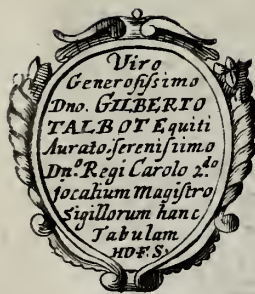 Viro
Generosissimo
Dno. GILBERTO
TALBOT Equiti
Aurato, serenissimo
Dn.º Regi Carolo 2.do
Jocalium Magistro
Sigillorum hanc
Tabulam
HDF.S